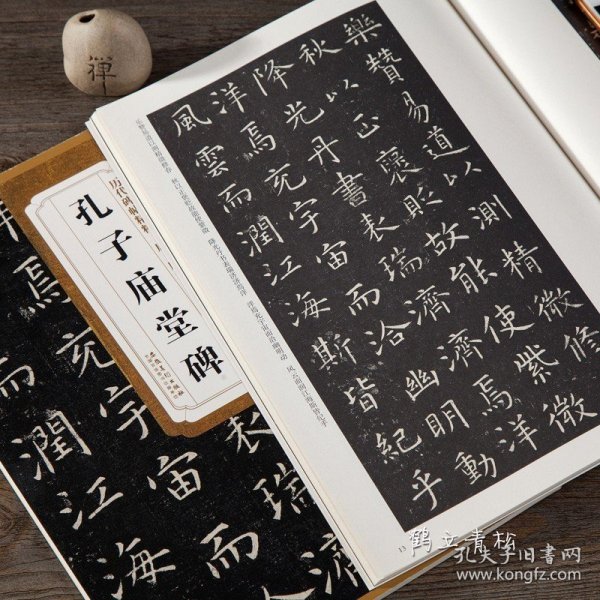 禪
樂贊易道以測精微修
秋以正褒貶故能使紫微
降光丹書表瑞濟濟焉洋
洋焉充宇宙而洽幽明動
風雲而潤江海斯皆紀乎
13
历代碑帖精粹
孔子庙堂碑
表瑞
焉充宇宙而
而潤江海
鹤立青松
孔夫子旧书网
www.kongfz.com